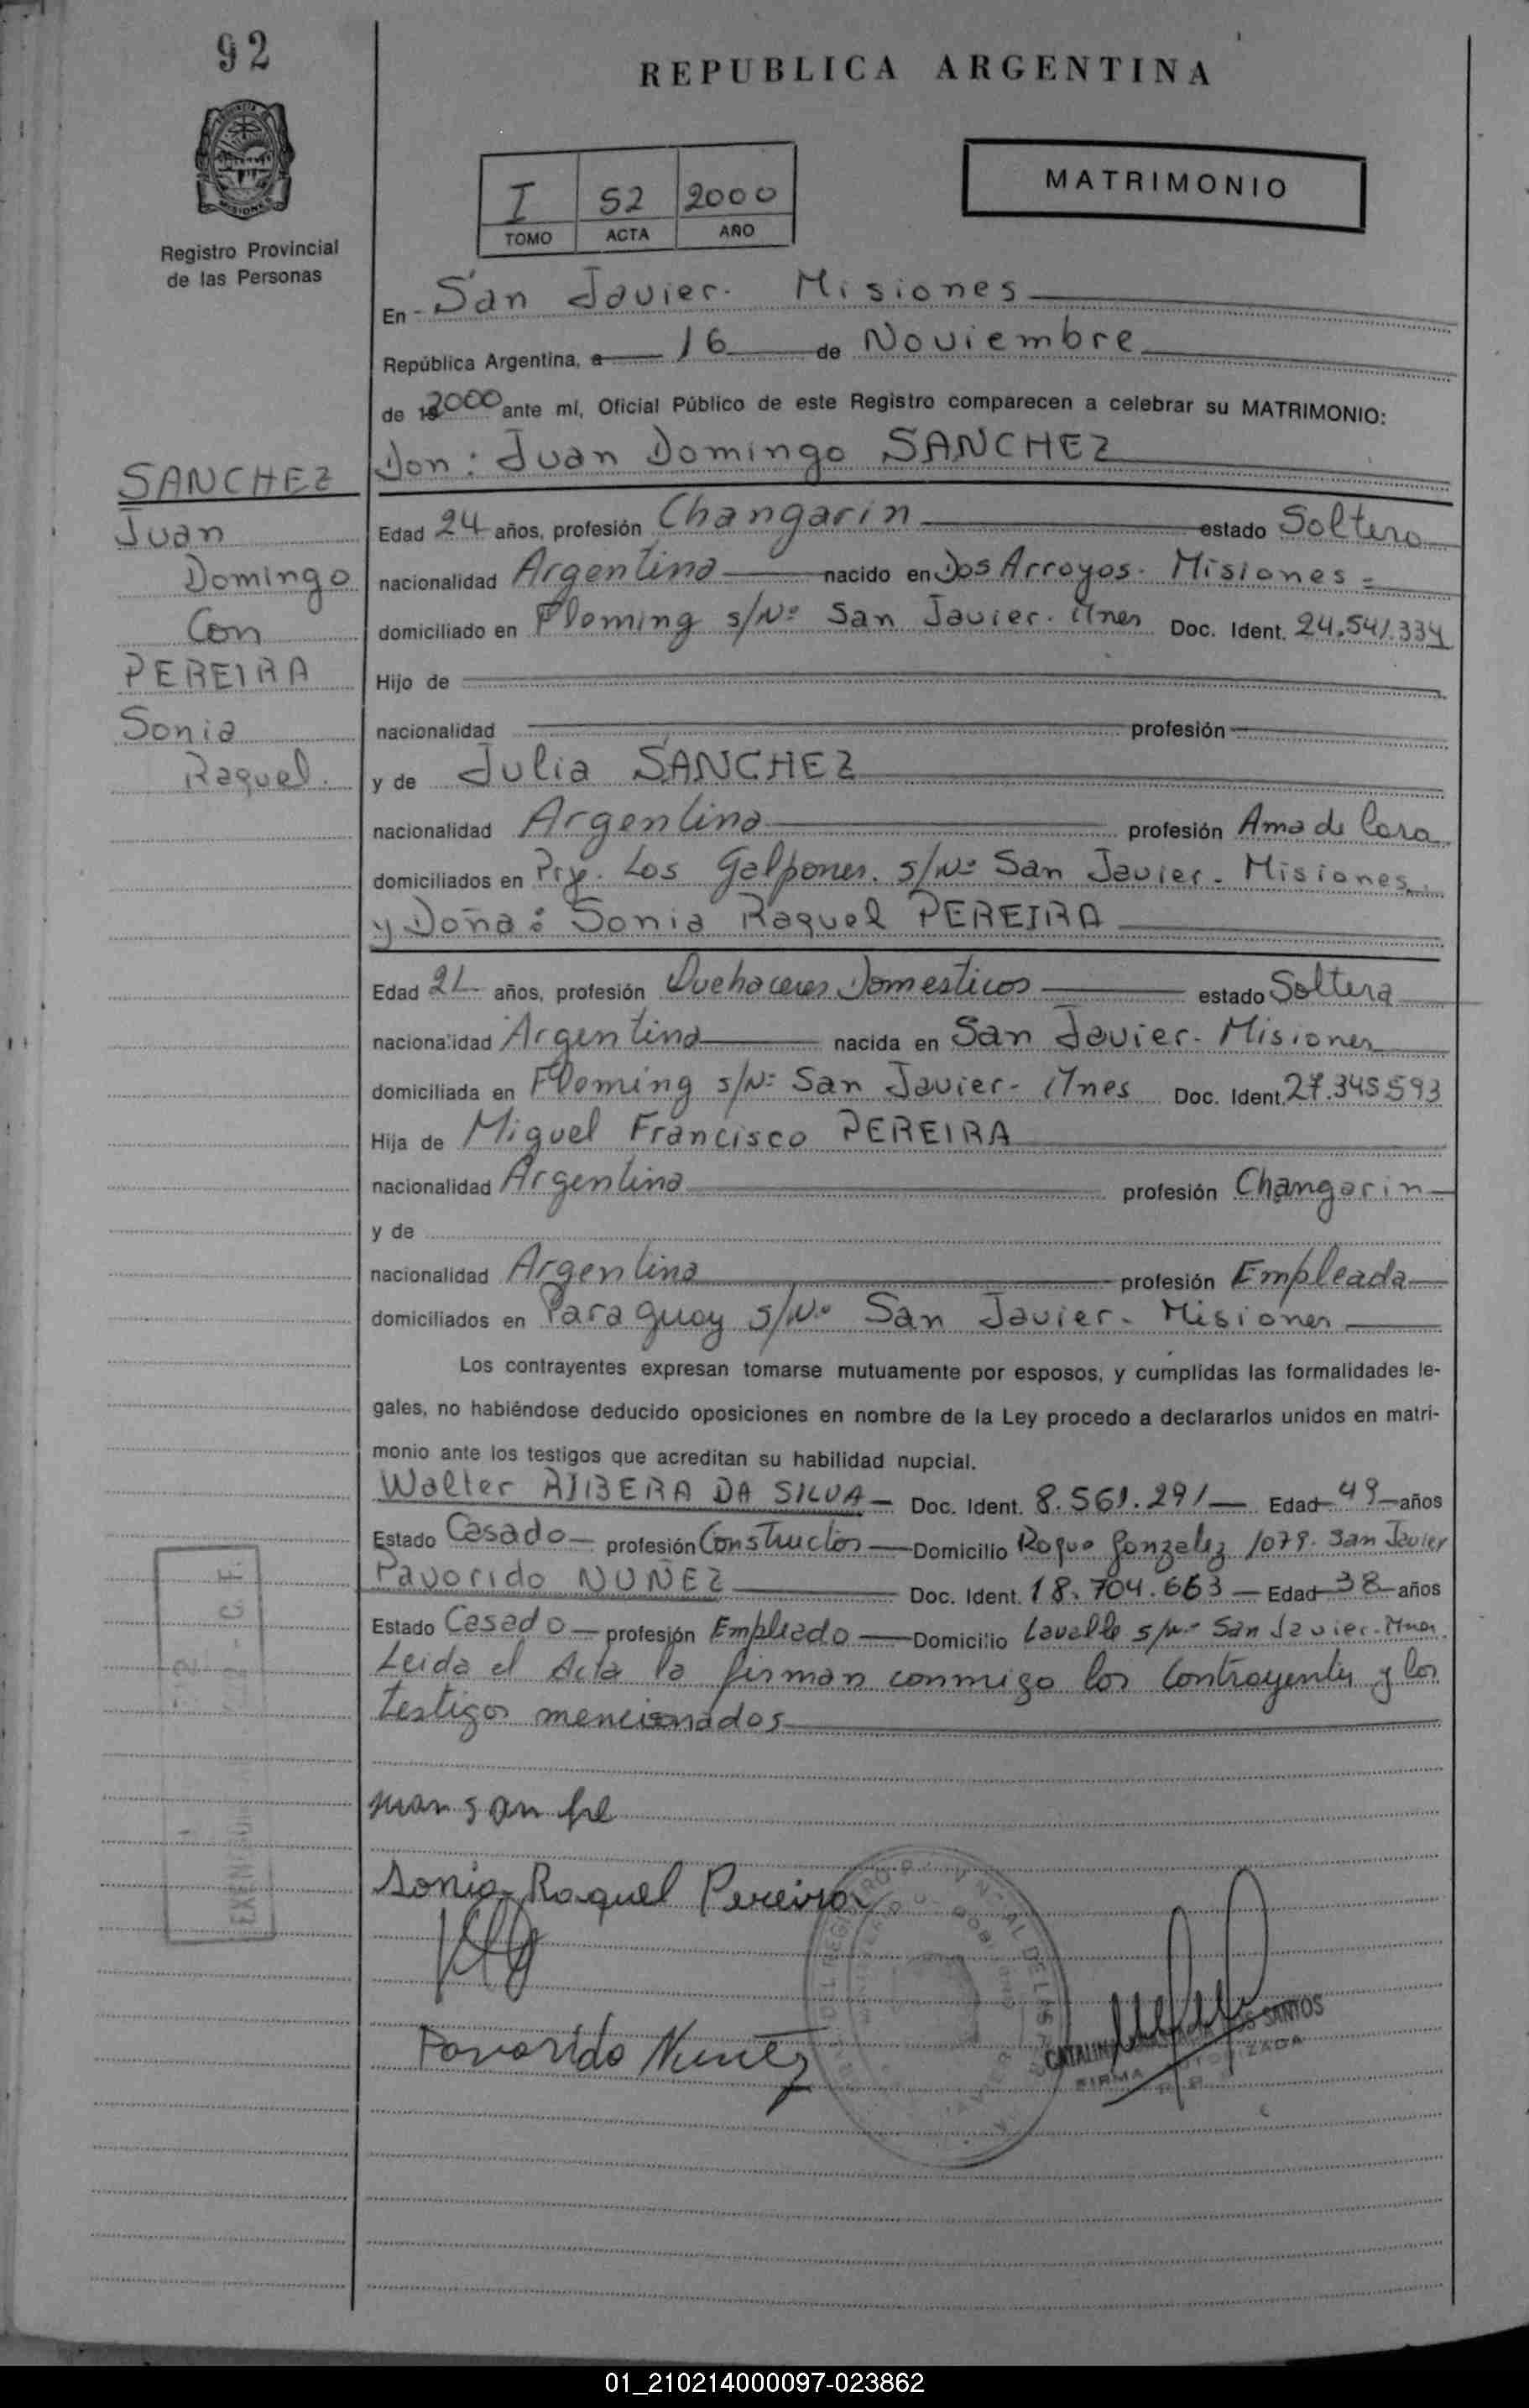 92
REPUBLICA ARGENTINA
MISIONES
Registro Provincial
de las Personas
I 52 2000
TOMO ACTA AÑO
MATRIMONIO
En San Javier. Misiones
República Argentina, a 16 de Noviembre
de 2000 ante mí, Oficial Público de este Registro comparecen a celebrar su MATRIMONIO:
Don: Juan Domingo SANCHEZ
SANCHEZ
Juan
Domingo
Con
PEREIRA
Sonia
Raquel.
Edad 24 años, profesión Changarin estado Soltero
nacionalidad Argentina nacido en Dos Arroyos. Misiones =
domiciliado en Fleming s/Nº San Javier. Mnes Doc. Ident. 24.541.334
Hijo de
nacionalidad profesión
y de Julia SANCHEZ
nacionalidad Argentina profesión Ama de Casa
domiciliados en Los Galpones. s/Nº San Javier. Misiones
y Doña: Sonia Raquel PEREIRA
Edad 21 años, profesión Quehaceres Domesticos estado Soltera
nacionalidad Argentina nacida en San Javier. Misiones
domiciliada en Fleming s/Nº San Javier. Mnes Doc. Ident. 27.345.593
Hija de Miguel Francisco PEREIRA
nacionalidad Argentina profesión Changarin
y de
nacionalidad Argentina profesión Empleada
domiciliados en Paraguay s/Nº San Javier. Misiones
Los contrayentes expresan tomarse mutuamente por esposos, y cumplidas las formalidades le-
gales, no habiéndose deducido oposiciones en nombre de la Ley procedo a declararlos unidos en matri-
monio ante los testigos que acreditan su habilidad nupcial.
Walter RIBERA DA SILVA Doc. Ident. 8.561.291 Edad 49 años
Estado Casado profesión Constructor Domicilio Roque Gonzalez 1079. San Javier
Pavorido NUÑEZ Doc. Ident. 18.704.663 Edad 38 años
Estado Casado profesión Empleado Domicilio Lavalle s/Nº San Javier. Mnes.
Leida el Acta la firman conmigo los Contrayentes y los
testigos mencionados
Sonia Raquel Pereira
Pavorido Nuñez
SANTOS
FIRMA AUTORIZADA
01_210214000097-023862